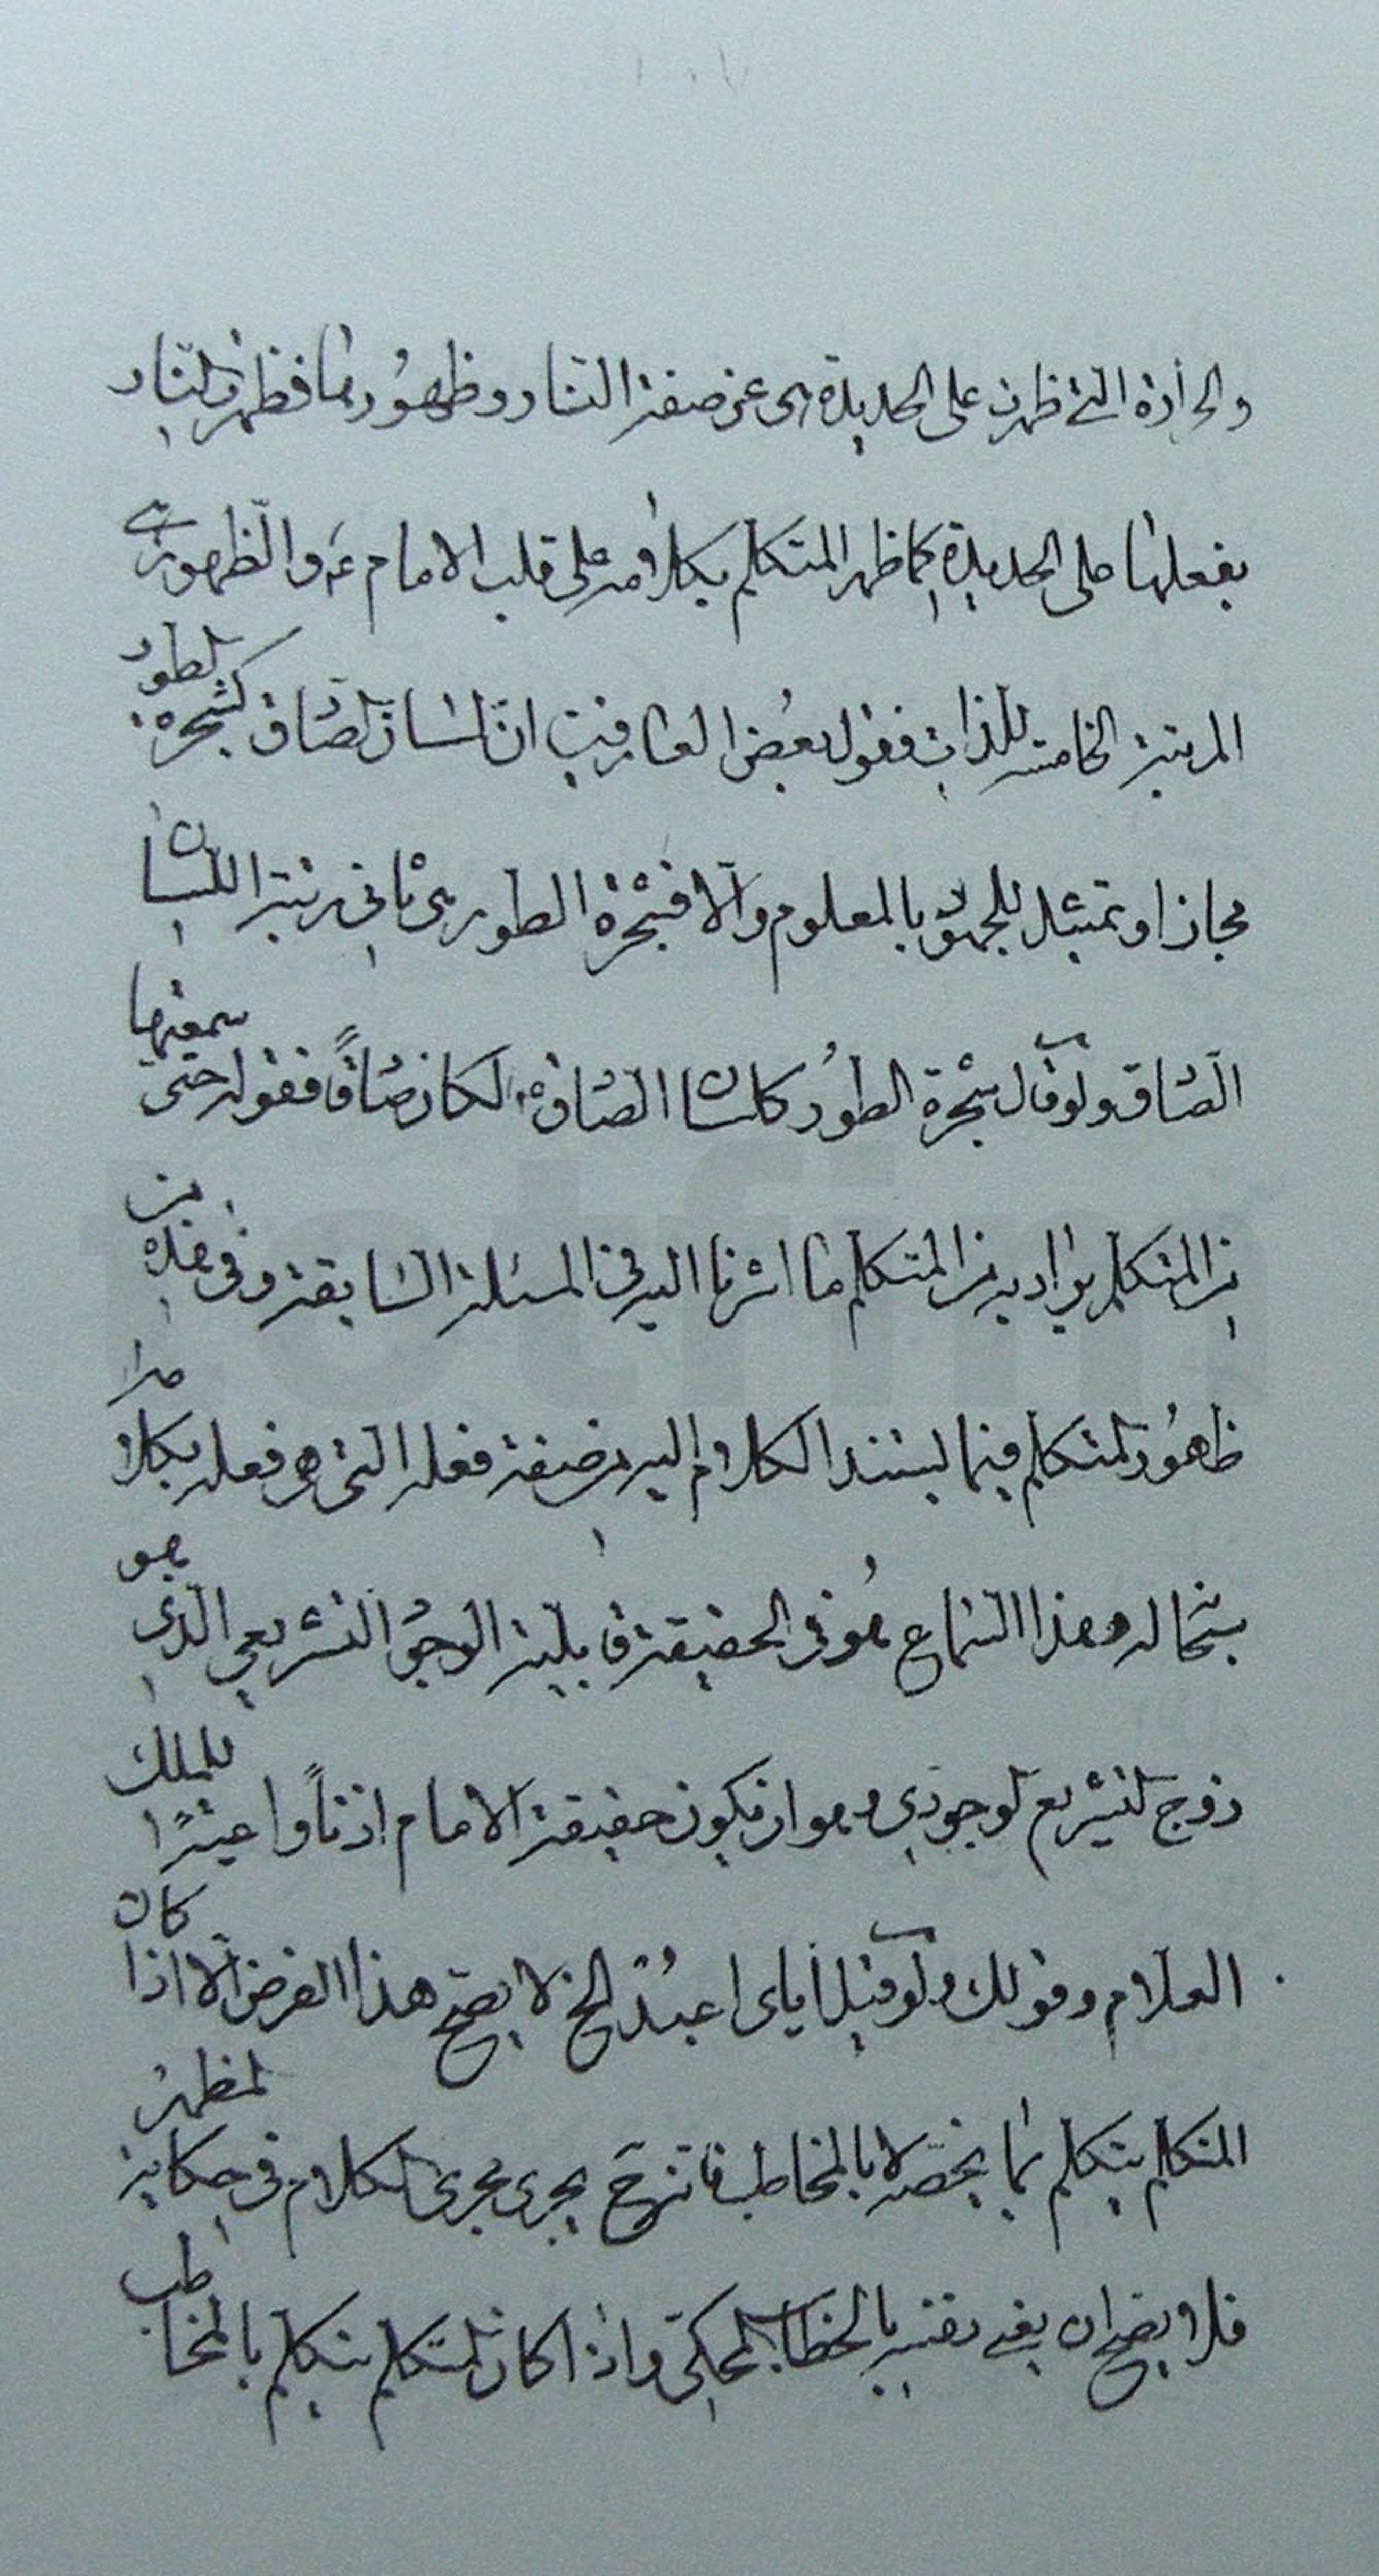 والحرارة التي ظهرت على الحديدة هي عن صفة النار وظهورها فظهرت النار
بفعلها على الحديدة كما ظهر المتكلم بكلامه على قلب الامام ع والظهور في
المرتبة الخامسة للذات فقول بعض العارفين ان لسان الصادق كشجرة الطور
مجاز او تمثيل للجمهور بالمعلوم والا فشجرة الطور هي ثاني رتبة اللسان
الصادق ولو قال شجرة الطور كلسان الصادق لكان صادقا فقوله حتى سمعتها
من المتكلم يراد به من المتكلم ما اشرنا اليه في المسئلة السابقة وفي هذه من
ظهور المتكلم فيما يستند الكلام اليه من صفة فعله التي هي فعله بكلا
بنحاله وهذا السماع هو في الحقيقة قابلية الوحي التشريعي الذي هو
روح التشريع الوجودي وهو ان تكون حقيقة الامام اذنا واعية للملك
العلام وقولك ولو قيل اياي اعبد الخ لا يصح هذا الفرض الا اذا كان
المتكلم يتكلم بما يخصه لا بالمخاطب فانه ح يجري مجرى الكلام في حكاية المظهر
فلا يصح ان يعني نفسه بالخطاب المحكي واذا كان المتكلم يتكلم بالمخاطب